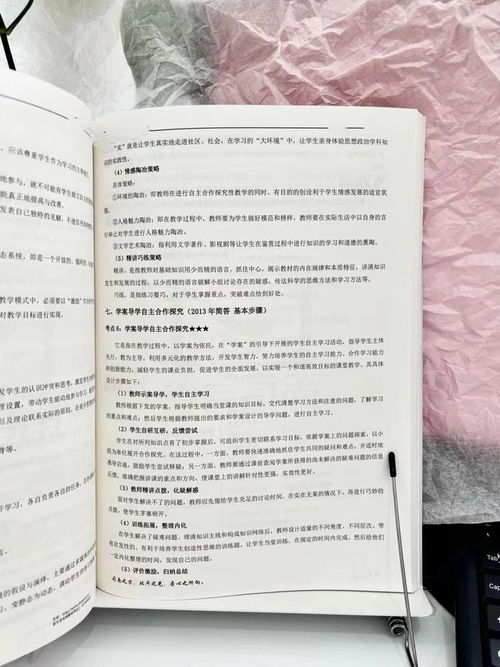 ，应该尊重学生作为学习的主体
地参与，就不可能有学生独立
能真正地提高与改善。
发表自己独特的见解，不迷信书本
态系统，即是一个开放的、循环的
教学模式中，必须要以“激励”
时教学目标进行实现。
学生的认识冲突和思考，激发学生
理设置，带动学生能动地参与学习
则及理论联系实际的原则，在
开学习，各自负责各自的任务，
的假设与演绎，主要通过多媒
，变静态为动态，调动学生的
“实”就是让学生真实地走进社区、社会，在学习的“大环境”中，让学生亲身体验思想政治学科知
识的实践性。
（4）情感陶冶策略
具体策略：
①环境的陶冶：即教师在进行自主合作探究性教学的同时，有目的的创设利于学生情感发展的适宜氛
围。
②人格魅力陶冶：即在教学过程中，教师要为学生做好模范和榜样，教师要在实际生活中以自身的言
行举止对学生进行人格魅力陶冶。
③文学艺术陶冶：指利用文学著作、影视剧等让学生在鉴赏过程中进行知识的学习和道德的熏陶。
（5）精讲巧练策略
精讲，是指教师对基础知识用少而精的语言，抓住中心，揭示教材的内在规律和本质特征，讲清知识
发生和发展的过程；以少而精的语言破解小组讨论存在的疑惑，传达科学的思想方法和学习方法等。
巧练，是指练习要巧，对于学生掌握重点，突破难点恰到好处。
七、学案导学自主合作探究（2013年简答 基本步骤）
考点6：学案导学自主合作探究★★★
它是指在教学过程中，以学案为依托，在“学案”的引导下开展的学生自主学习活动，倡导学生主体
先行，教为主导，利用多元化的教学方法，开发学生智力，努力培养学生的自主学习能力、合作学习能力
和创新能力，减轻学生的课业负担，促进学生的全面发展，以实现一个和谐高效目标的课堂教学，其具体
设计步骤如下：
（1）教师示案导学，学生自主学习
教师根据下发的学案，指导学生明确当堂课的知识目标，交代清楚学习方法和注意的问题，了解学习
的重点和难点；然后学生根据教师提出的要求和学案设计的导学问题，进行自主学习。
（2）学生自研互研，反馈尝试
学生在对所列知识点有了初步掌握后，可组织学生密切联系学习目标，依据学案上的问题探索，以小
组为单位展开合作探究。在这过程中，一方面，教师要快速准确地抓住学生共同的疑问和难点，并适时地
诱导启迪，鼓励学生尝试释疑；另一方面，教师要通过课前查阅学案所获得的尚未解决的疑难问题的信息
反馈，准确把握讲课的重点和方向，使课堂上的讲解针对性更强，实效性更好。
（3）教师精讲点拨，化疑解惑
面对学生解决不了的问题，教师应先留给学生充足的讨论时间，在实在无果的情况下，再进行巧妙的
点拨，使学生茅塞顿开。
（4）训练拓展，整理内化
在学生解决了疑难问题，理清知识主线和构成知识网络后，教师设计适量的不同角度、不同层次，带
有启发性的、有利于培养学生创造性思维的训练题，让学生当堂训练，在规定的时间内完成，然后给他们
一定内化整理的时间，发现自己的问题。
（5）评价激励，归纳总结